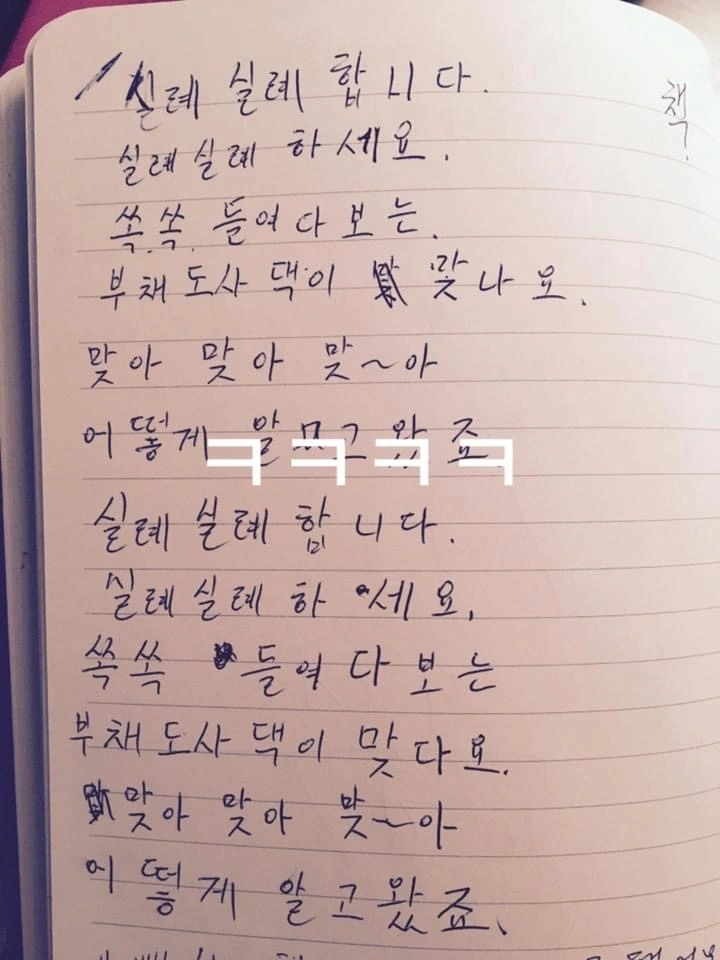 실례 실례 합니다.
책
실례실례 하세요.
쏙.쏙. 들여다보는.
부채도사댁이 맞나요.
맞아 맞아 맞~아
어떻게 알고왔죠.
ㅋㅋㅋㅋ
실례 실례 합니다.
실례실례 하세요.
쏙쏙 들여다보는
부채도사댁이 맞다요.
맞아 맞아 맞~아
어떻게 알고왔죠.